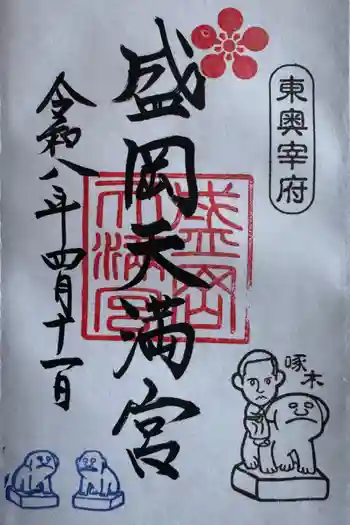 東奥宰府
盛岡天満宮
令和八年四月十一日
啄木
盛岡
天満宮